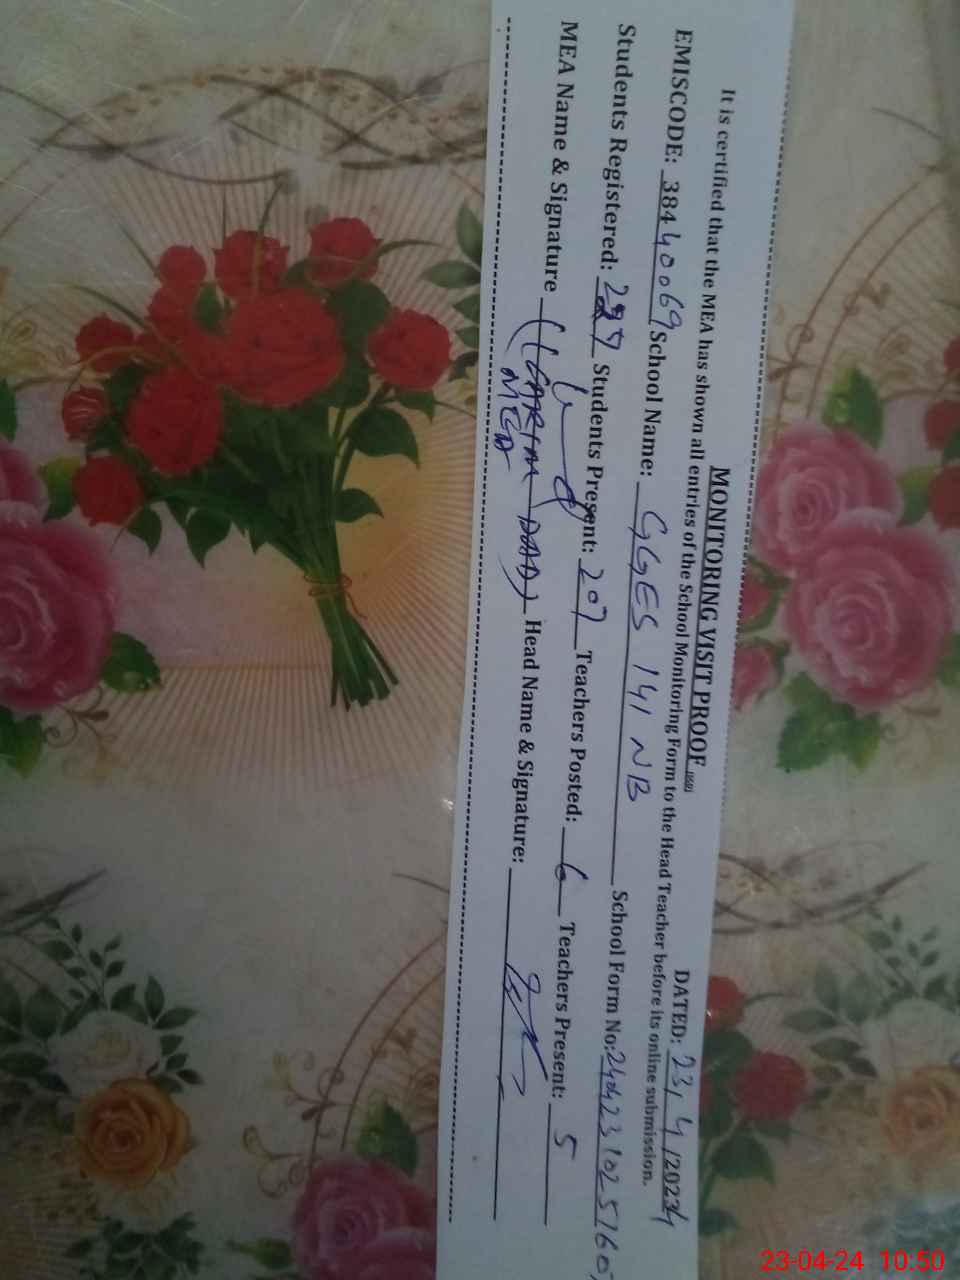 MONITORING VISIT PROOF (668) DATED: 23/4/2024
It is certified that the MEA has shown all entries of the School Monitoring Form to the Head Teacher before its online submission.
EMISCODE: 38440069 School Name: GGES 141 NB School Form No: 2404231025160
Students Registered: Students Present: 207 Teachers Posted: 6 Teachers Present: 5
MEA Name & Signature (KARIM DAD) Head Name & Signature:
MEA
23-04-24 10:50